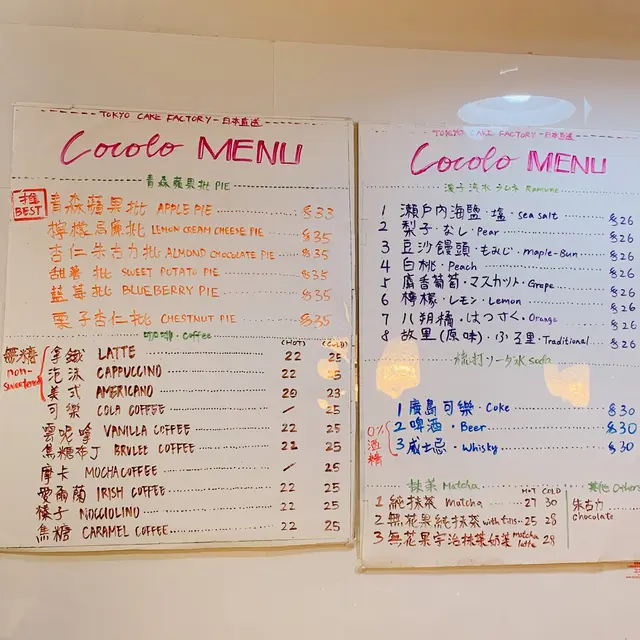 TOKYO CAKE FACTORY - 日本直送
Cocolo MENU
青森蘋果批 PIE
推 BEST
青森蘋果批 APPLE PIE $33
檸檬忌廉批 LEMON CREAM CHEESE PIE $35
杏仁朱古力批 ALMOND CHOCOLATE PIE $35
甜薯批 SWEET POTATO PIE $35
藍莓批 BLUEBERRY PIE $35
栗子杏仁批 CHESTNUT PIE $35
咖啡・Coffee
(HOT) (COLD)
無糖 non-sweetened
拿鐵 LATTE 22 25
泡沫 CAPPUCCINO 22 25
美式 AMERICANO 20 23
可樂 COLA COFFEE / 25
雲呢拿 VANILLA COFFEE 22 25
焦糖布丁 BRULEE COFFEE 21 25
摩卡 MOCHA COFFEE / 25
愛爾蘭 IRISH COFFEE 22 25
榛子 NOCCIOLINO 22 25
焦糖 CARAMEL COFFEE 22 25
TOKYO CAKE FACTORY - 日本直送
Cocolo MENU
汽水 ラムネ Ramune
1 瀨戶內海鹽・塩・sea salt $26
2 梨子・なし・Pear $26
3 豆沙饅頭・もみじ・Maple-Bun $26
4 白桃・Peach $26
5 麝香葡萄・マスカット・Grape $26
6 檸檬・レモン・Lemon $26
7 八朔橘・はっさく・Orange $26
8 故里(原味)・ふる里・Traditional $26
梳打 ソーダ水 soda
0% 酒精
1 廣島可樂・Coke $30
2 啤酒・Beer $30
3 威士忌・Whisky $30
抹茶 Matcha
HOT COLD
1 純抹茶 Matcha 27 30
2 無花果純抹茶 with 25 28
3 無花果宇治抹茶奶茶 matcha latte 28
其他 Others
朱古力
chocolate